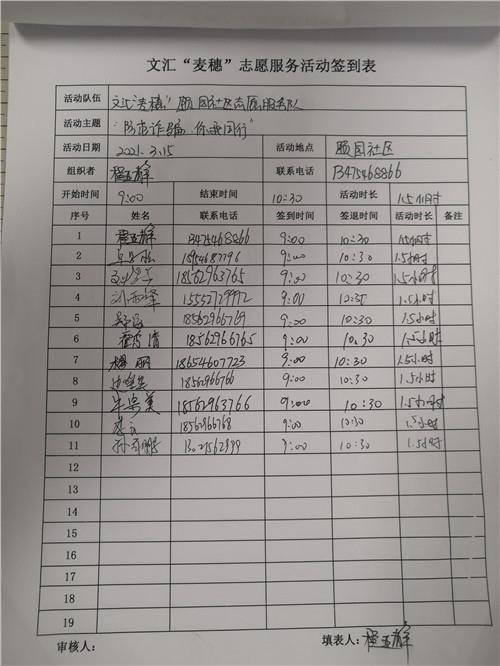 文汇“麦穗”志愿服务活动签到表
活动队伍 文汇“麦穗” 颐园社区志愿服务队
活动主题: “防范诈骗 你我同行”
活动日期 2021.3.15 活动地点 颐园社区
组织者 程玉静 联系电话 13475468866
开始时间 9:00 结束时间 10:30 活动时长 1.5小时
序号 姓名 联系电话 签到时间 签退时间 活动时长 备注
1 程玉静 13475468866 9:00 10:30 1.5小时
2 15954687796 9:00 10:30 1.5小时
3 18562963765 9:00 10:30 1.5小时
4 15552729992 9:00 10:30 1.5小时
5 18562966769 9:00 10:30 1.5小时
6 18562966765 9:00 10:30 1.5小时
7 丽 18654607723 9:00 10:30 1.5小时
8 9:00 10:30 1.5小时
9 美 18562963766 9:00 10:30 1.5小时
10 9:00 10:30 1.5小时
11 孙 13021562999 9:00 10:30 1.5小时
12
13
14
15
16
17
18
19
审核人: 填表人: 程玉静